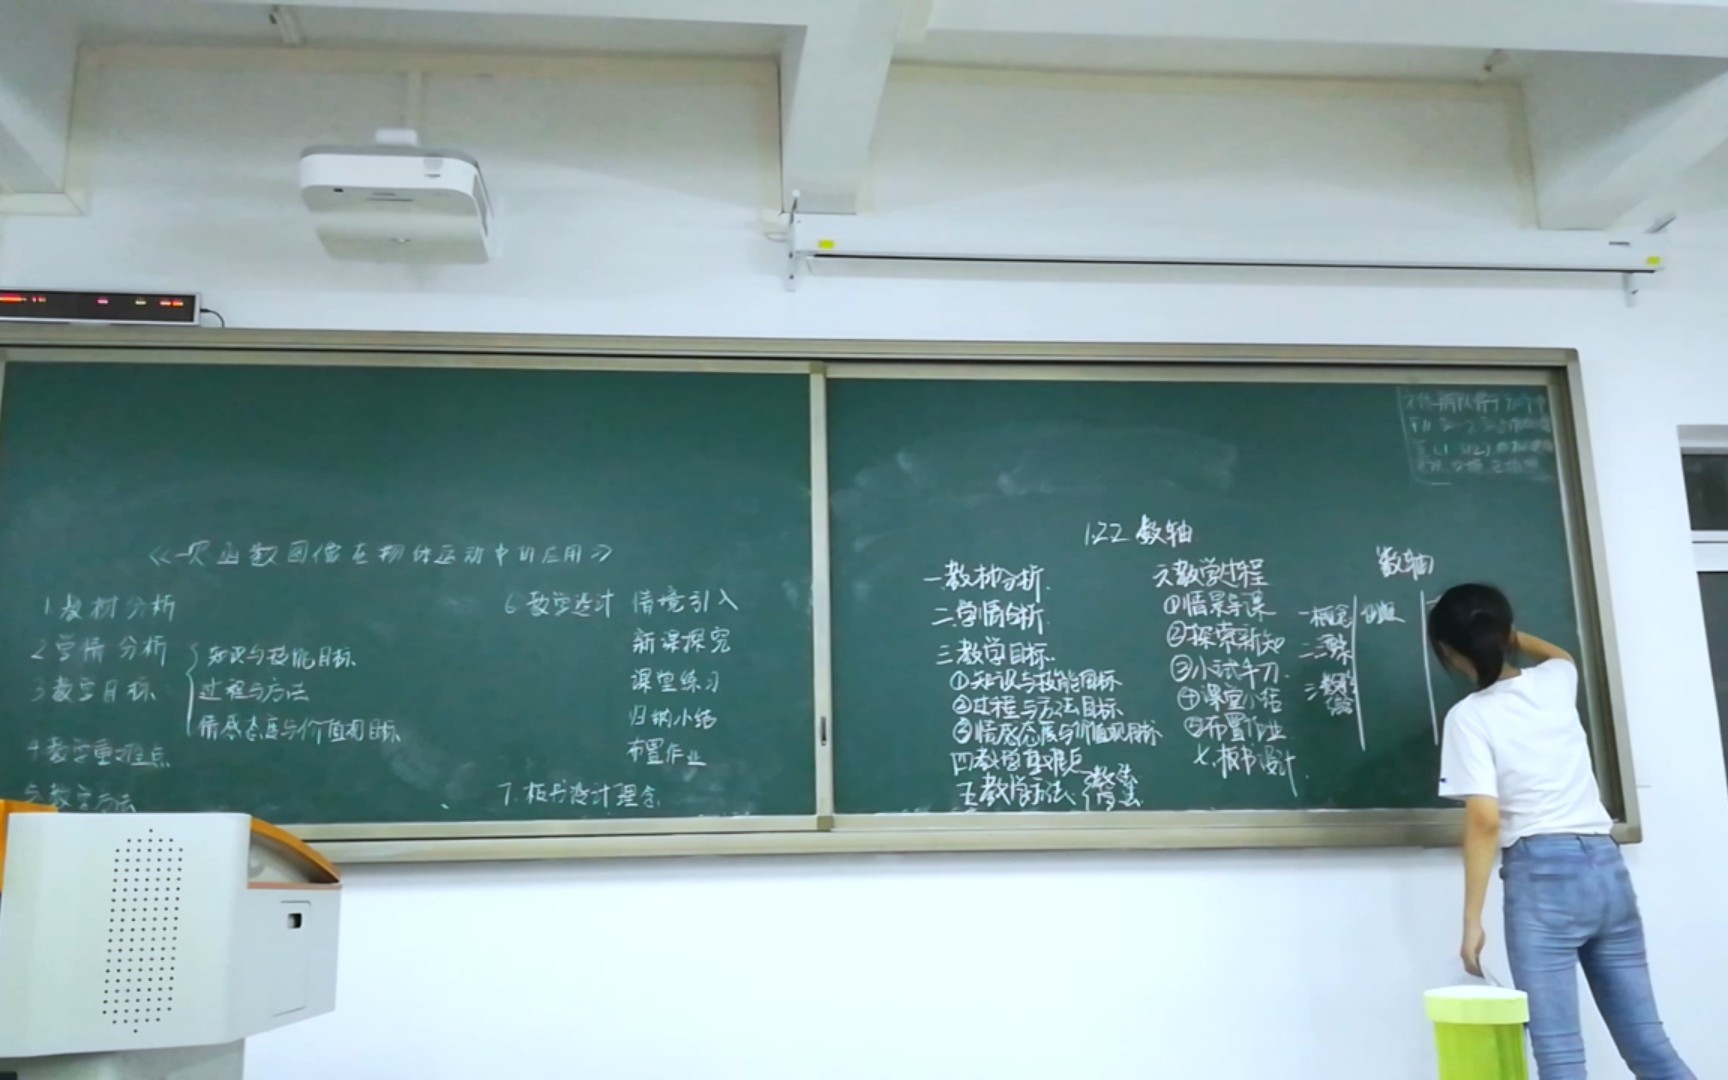 《一次函数图像在物体运动中的应用》
1.教材分析
2.学情分析
3.教学目标
知识与技能目标
过程与方法
情感态度与价值观目标
4.教学重难点
5.教学方法
6.教学设计 情境引入
新课探究
课堂练习
归纳小结
布置作业
7.板书设计理念
1.2.2 数轴
一.教材分析.
二.学情分析.
三.教学目标.
①知识与技能目标
②过程与方法目标
③情感态度与价值观目标
四.教学重难点
五.教学方法.
六.教学过程
①情景导课
②探索新知
③小试牛刀.
④课堂小结
⑤布置作业.
七.板书设计.
数轴
一.概念
例题